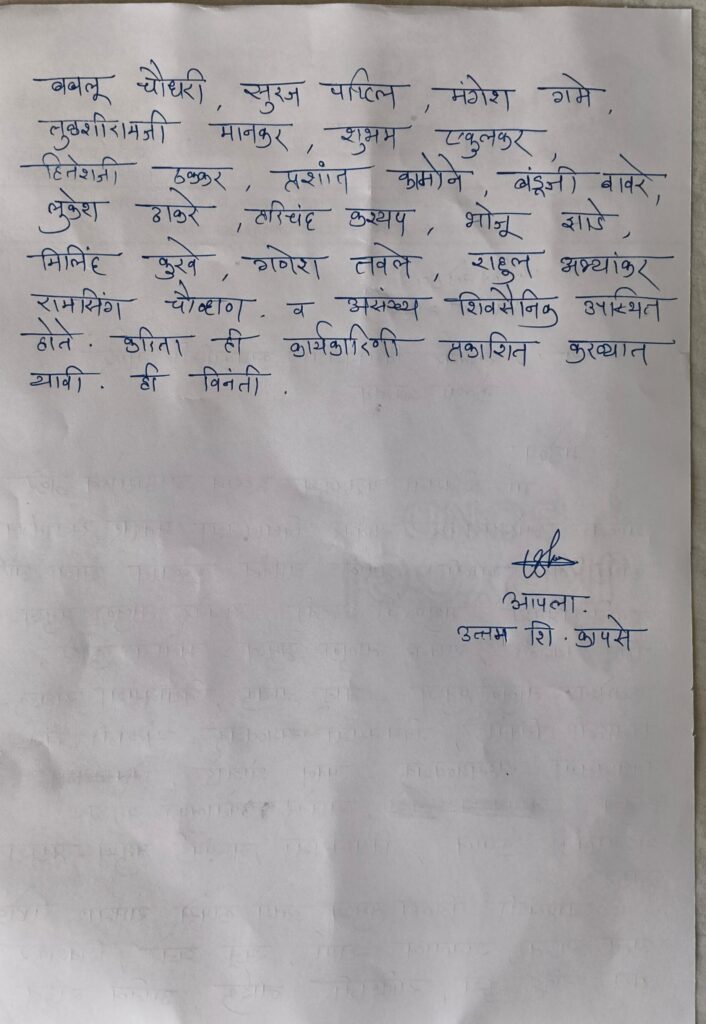 बबलू चौधरी, सुरज पाटिल, मंगेश गमे,
तुळशीरामजी मानकर, शुभम एकुलकर,
हितेशजी ठक्कर, प्रशांत कामोने, बंडूजी बावरे,
लुकेश ठाकरे, हरिचंद कश्यप, भोजू झाडे,
मिलिंद कुरवे, गणेश तवले, राहुल अभ्यांकर
रामसिंग चौव्हाण. व असंख्य शिवसैनिक उपस्थित
होते. करिता ही कार्यकारिणी प्रकाशित करण्यात
यावी. ही विनंती.
आपला.
उत्तम शि. कापसे